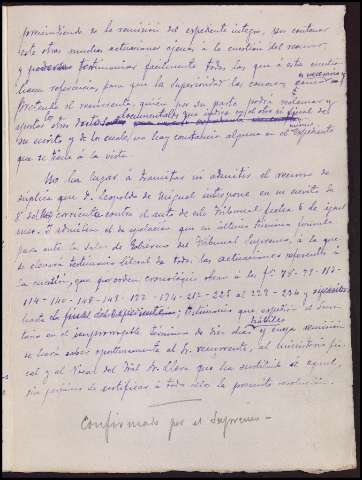 prescindiendo de la remisión del expediente íntegro, por contener
este otras muchas actuaciones ajenas a la cuestión del recurso
y testimoniar facilmente todas las que a esta cuestión
hacen referencia, para que la Superioridad las conozca y
el recurrente, quien por su parte podrá reclamar y
aportar otros documentales que indica en el otro si final del
su escrito y de los cuales no hay constancia alguna en el expediente
que se tiene a la vista.
No ha lugar a tramitar ni admitir el recurso de
súplica que D. Leopoldo de Miguel interpone en su escrito de
8 del corriente contra el auto de este Tribunal fecha 6 de igual
mes. Y admitiendo el de apelación que en último término formula
para ante la Sala de Gobierno del Tribunal Supremo, a la que
se elevará testimonio literal de todas las actuaciones referentes a
la cuestión, que por orden cronológico obran a los fs. 75-79-112-
114-140-148-149-172-174-212-225 al 227-234, y siguientes
hasta el final del expediente; testimonio que expedirá el Secre-
tario en el improrrogable término de diez dias hábiles y cuya remisión
se hará saber oportunamente al Sr. recurrente, al ministerio fis-
cal y al Vocal del Trial Sr. que ha sustituido a aquel,
sin perjuicio de notificar a todos ellos la presente resolución.
Confirmado por el Supremo-